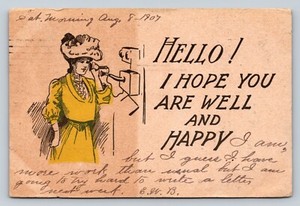 Sat. Morning Aug. 8-1907
HELLO!
I HOPE YOU
ARE WELL
AND
HAPPY I am,
but I guess I have
more work than usual but I am
going to try hard to write a letter
next week. E.W.B.